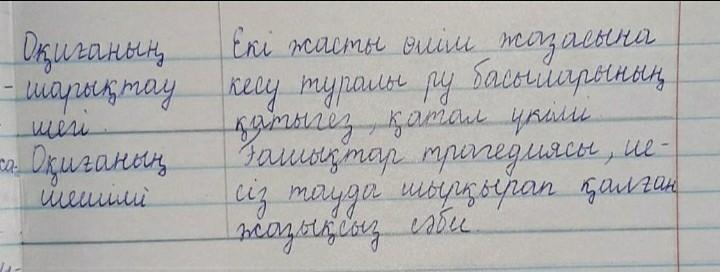 Оқиғаның Екі жасты өлім жазасына
шарықтау кесу туралы ру басыларының
шегі. қатыгез, қатал үкімі.
Оқиғаның Ғашықтар трагедиясы, ие-
шешімі сіз тауда шырқырап қалған
жазықсыз сәби.